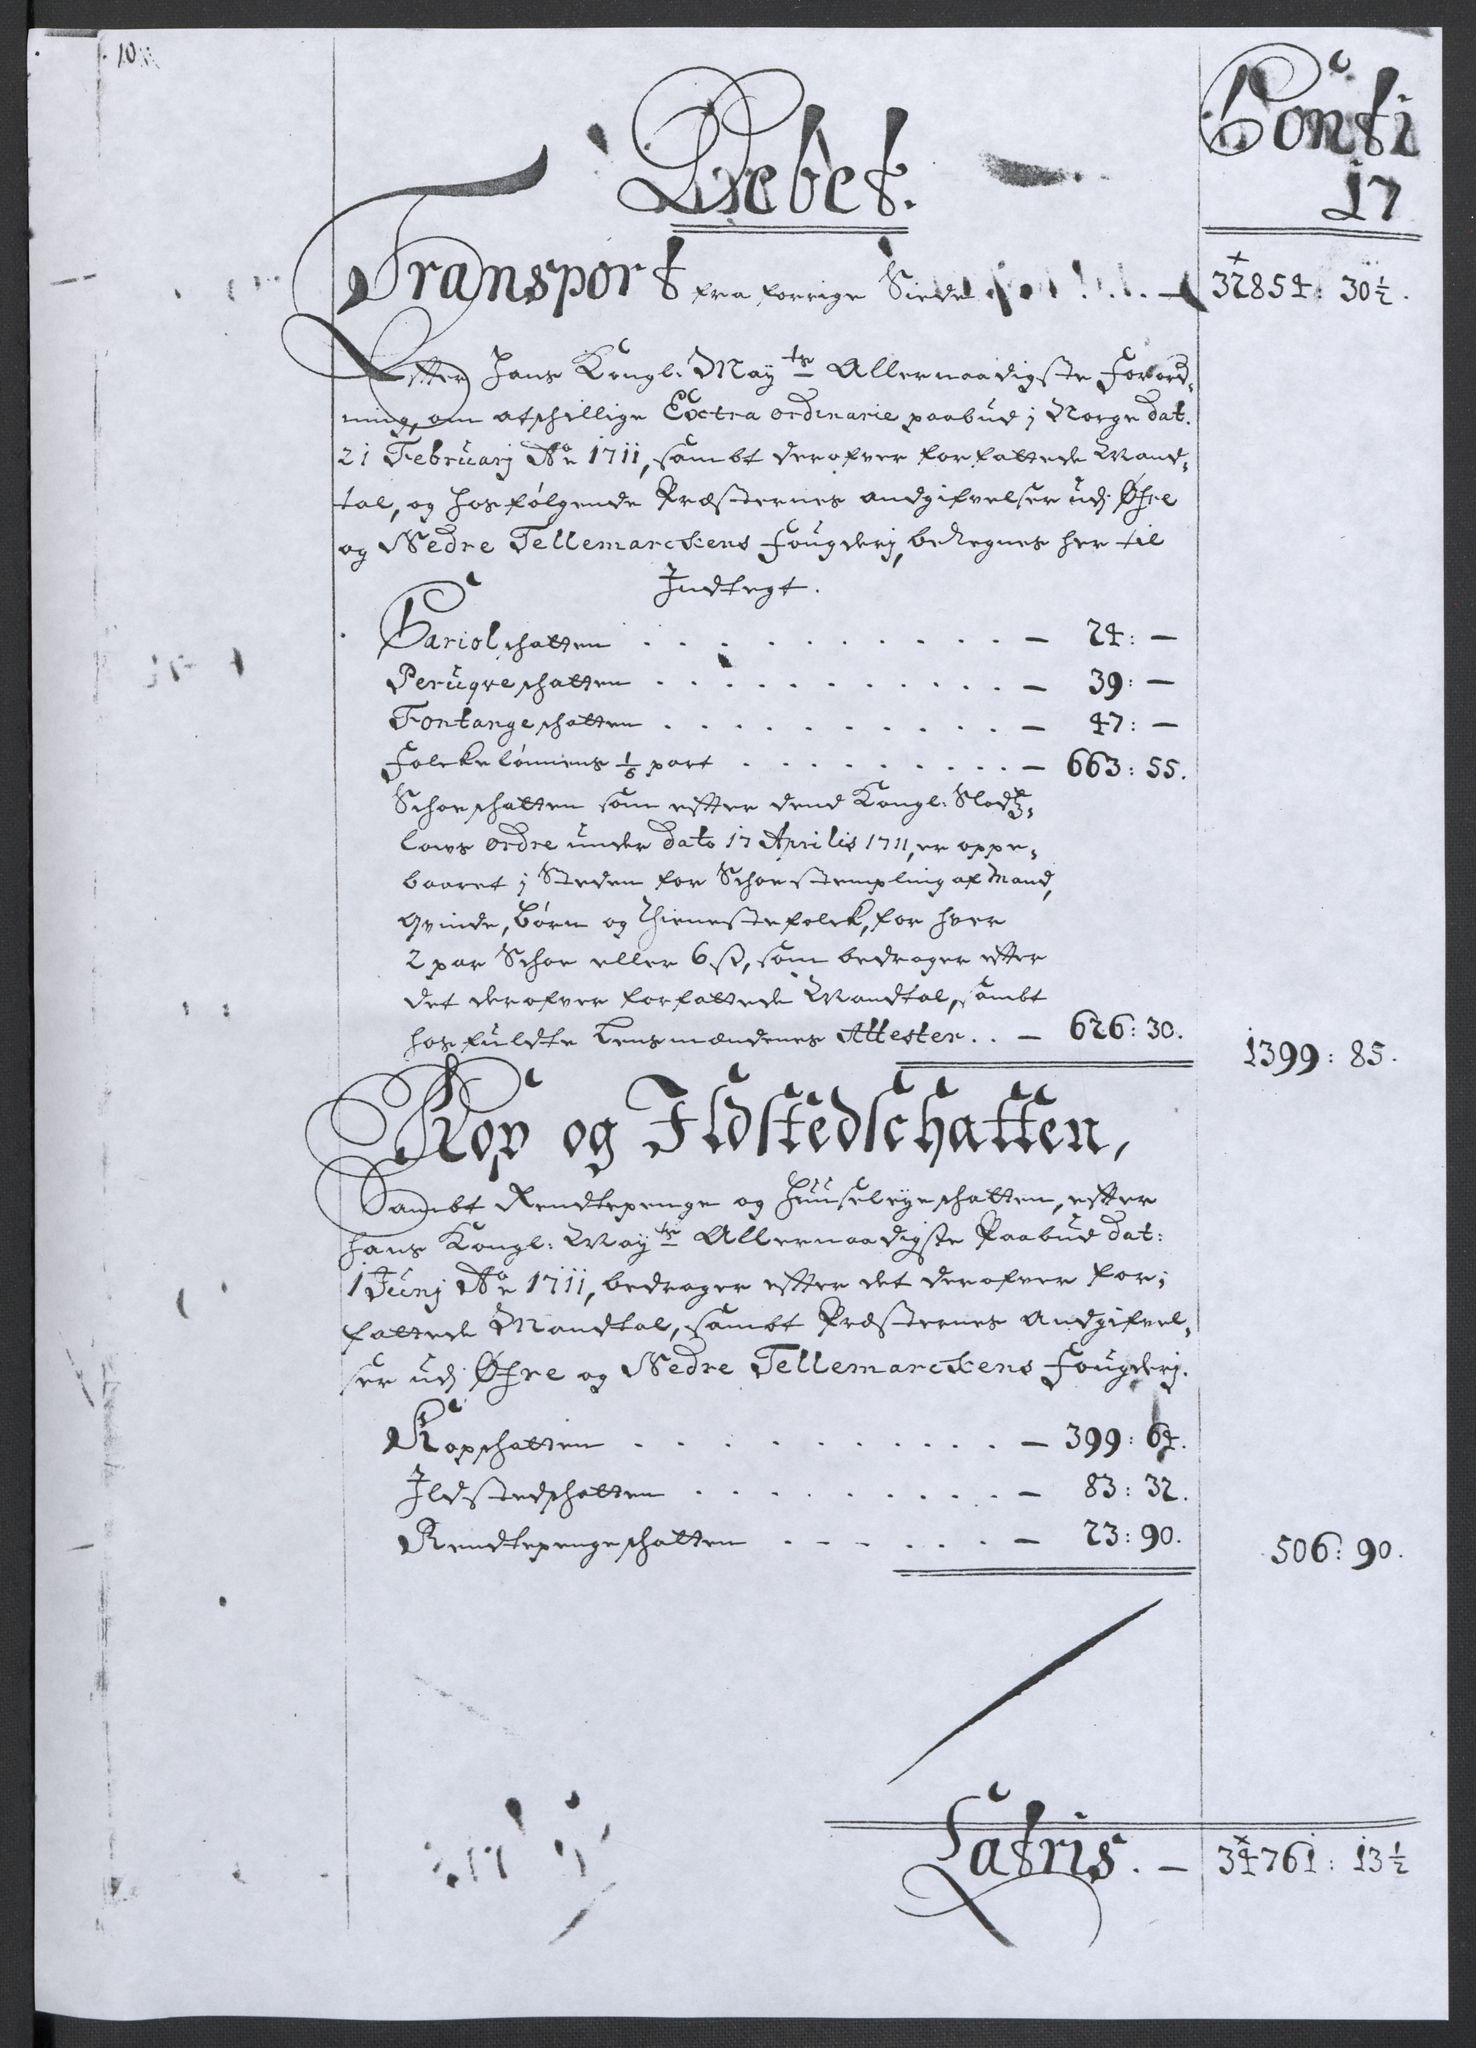 10
Conti
Debet.
17
Transport fra forrige Siede — 32854: 30½.
Effter Hans Kongl: Mayts Allernaadigste Forord-
ning, om atskillige Extra ordinarie paabud j Norge dat.
21 Februarj Ao 1711, sambt derofver forfattede Mand-
tal, og hosfølgende Præsternes andgifvelser udj Øfre
og Nedre Tellemarckens Fougderj, beregnes her til
Indtegt.
Cariolschatten . . . — 24: —
Peruqveschatten . . . — 39: —
Fontangeschatten . . . — 47: —
Folckelønnens 1/6 part . . . — 663: 55.
Schoeschatten som effter dend Kongl: Slodz-
lows ordre under dato 17 Aprilis 1711, er oppe-
baaret j Steden for Schoestempling af Mand,
Qvinde, Børn og Thienestefolck, for hver
2 par Schoe eller 6 ß, som bedrager effter
det derofver forfattede Mandtal, sambt
hosfuldte Lensmændenes Attester. . — 626: 30.
1399: 85.
Kop og Ildstedschatten,
Sambt Rendtepenge og Huuseleyeschatten, effter
hans Kongl: Mayts Allernaadigste Paabud dat:
1 Junj Ao 1711, bedrager effter det derofver for-
fattede Mandtal, sambt Præsternes Andgifvel-
ser udj Øfre og Nedre Tellemarckens Fougderj.
Kopschatten . . . — 399: 64.
Ildstedschatten . . . — 83: 32.
Rendtepengeschatten . . . — 23: 90.
506: 90.
Latris. — 34761: 13½